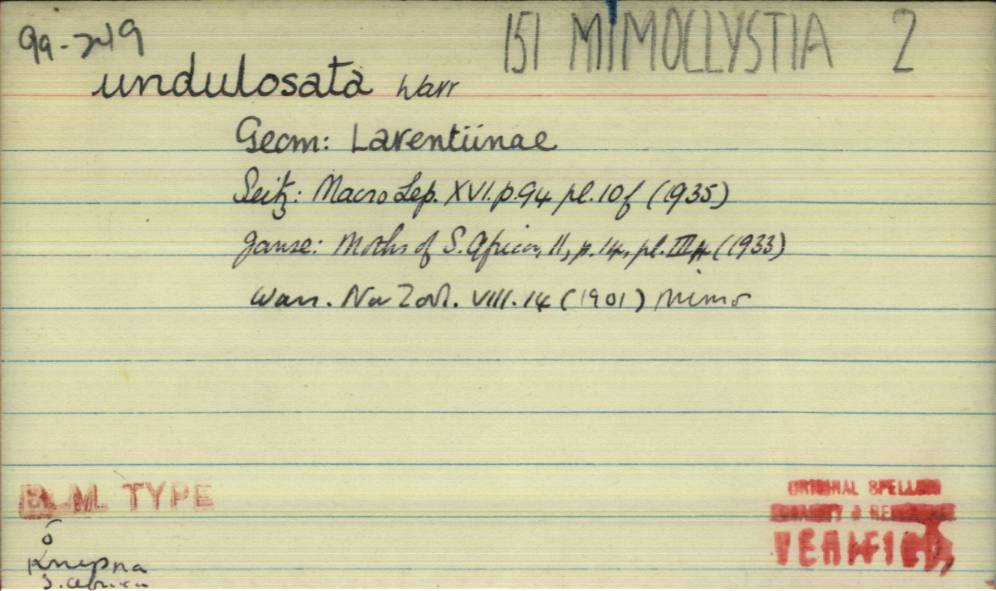 99-249
151 MIMOCLYSTIA 2
undulosata Warr
Geom: Larentiinae
Seitz: Macro Lep. XVI. p.94 pl. 10f (1935)
Janse: Moths of S. Africa, II, p. 14, pl. III (1933)
Warr. Nov Zool. VIII. 14 (1901) Mimo
B. M. TYPE
ORIGINAL SPELLING
LOCALITY & REFERENCE
VERIFIED,
Knysna
S. Africa